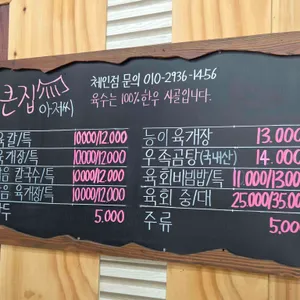 큰집
아저씨
체인점 문의 010-2936-1456
육수는 100% 한우 사골입니다.
육갈/특 10000/12,000
육개장/특 10000/12,000
칼국수/특 10000/12,000
육개장/특 10000/12,000
5.000
능이 육개장 13.000
우족곰탕(국내산) 14.000
육회비빔밥/특 11.000/13.00
육회 중/대 25.000/35.00
주류 5.00